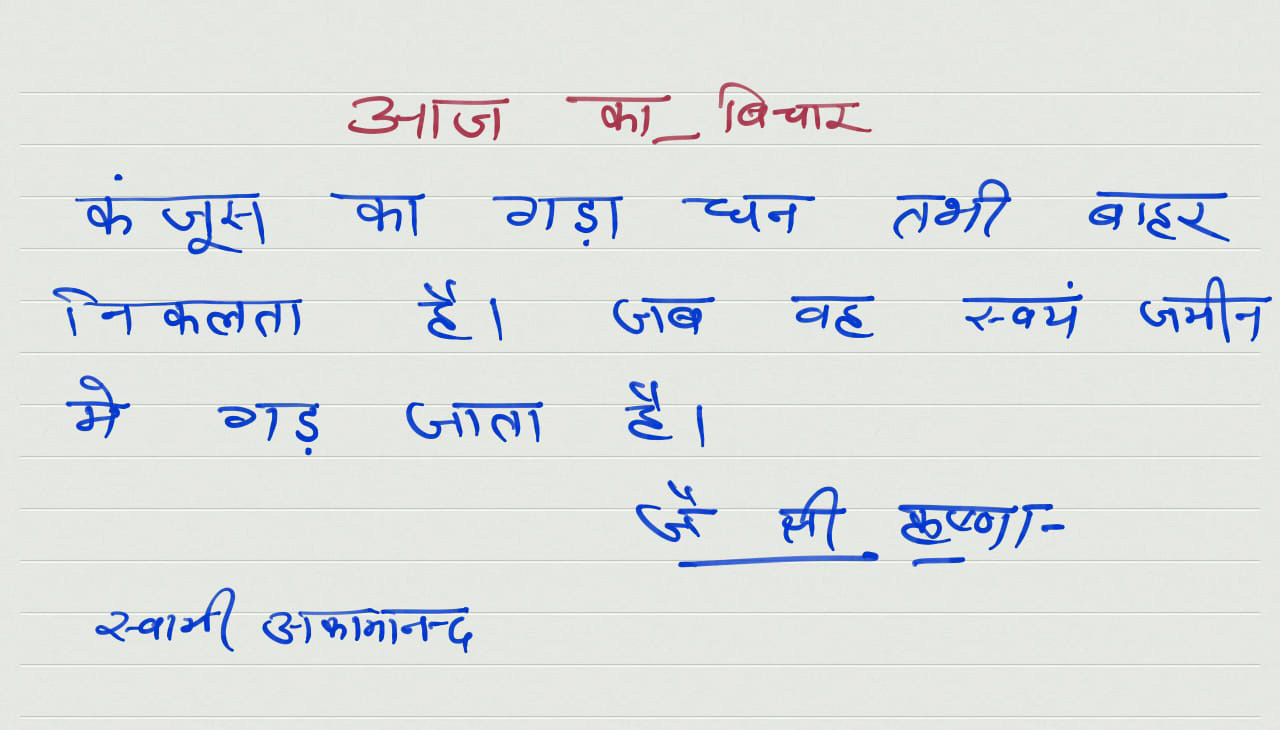 आज का बिचार
कंजूस का गड़ा धन तभी बाहर
निकलता है। जब वह स्वयं जमीन
मे गड़ जाता है।
जै श्री कृष्णा-
स्वामी अकामानन्द